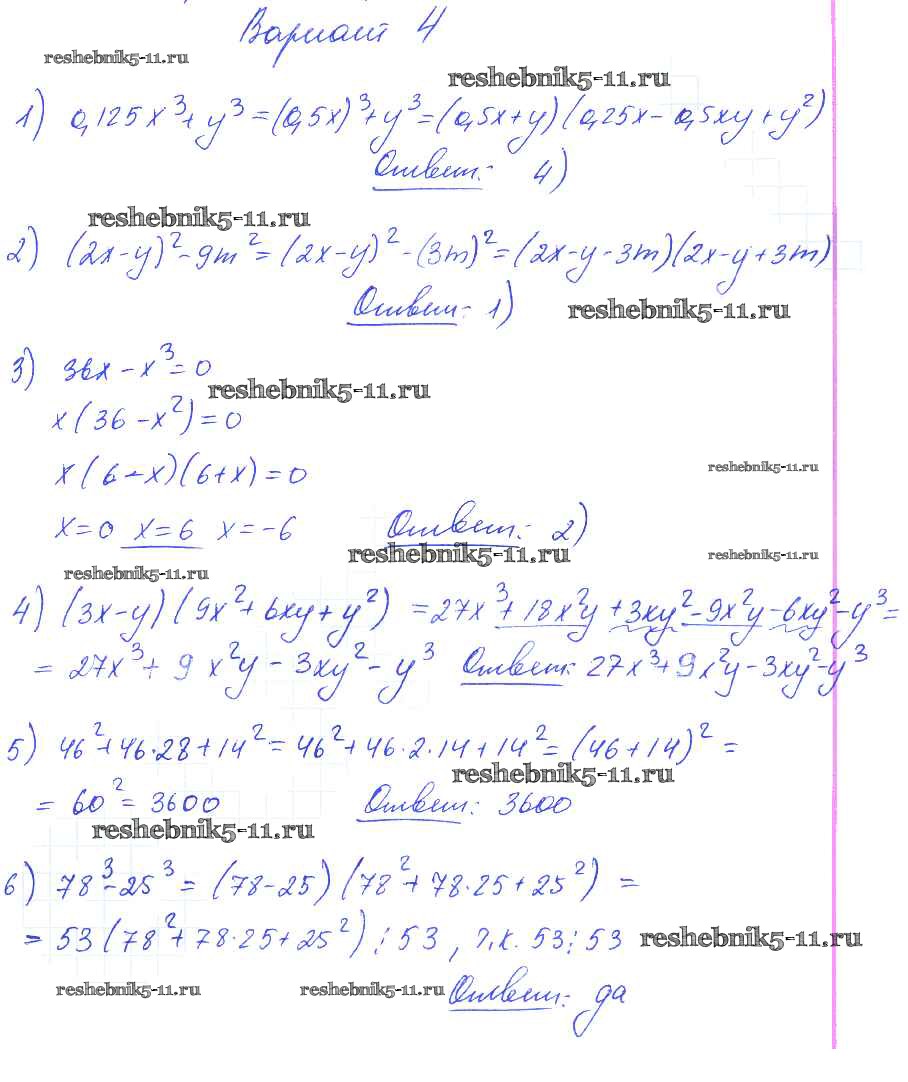 Вариант 4
reshebnik5-11.ru
reshebnik5-11.ru
1) 0,125x³ + y³ = (0,5x)³ + y³ = (0,5x + y)(0,25x - 0,5xy + y²)
Ответ: 4)
reshebnik5-11.ru
2) (2x - y)² - 9m² = (2x - y)² - (3m)² = (2x - y - 3m)(2x - y + 3m)
Ответ: 1)
reshebnik5-11.ru
3) 36x - x³ = 0
reshebnik5-11.ru
x(36 - x²) = 0
x(6 - x)(6 + x) = 0
reshebnik5-11.ru
x = 0 x = 6 x = -6 Ответ: 2)
reshebnik5-11.ru
reshebnik5-11.ru
reshebnik5-11.ru
4) (3x - y)(9x² + 6xy + y²) = 27x³ + 18x²y + 3xy² - 9x²y - 6xy² - y³ =
= 27x³ + 9x²y - 3xy² - y³ Ответ: 27x³ + 9x²y - 3xy² - y³
5) 46² + 46·28 + 14² = 46² + 46·2·14 + 14² = (46 + 14)² =
reshebnik5-11.ru
= 60² = 3600 Ответ: 3600
reshebnik5-11.ru
6) 78³ - 25³ = (78 - 25)(78² + 78·25 + 25²) =
= 53(78² + 78·25 + 25²) ⋮ 53, т.к. 53 ⋮ 53
reshebnik5-11.ru
reshebnik5-11.ru
reshebnik5-11.ru
Ответ: да